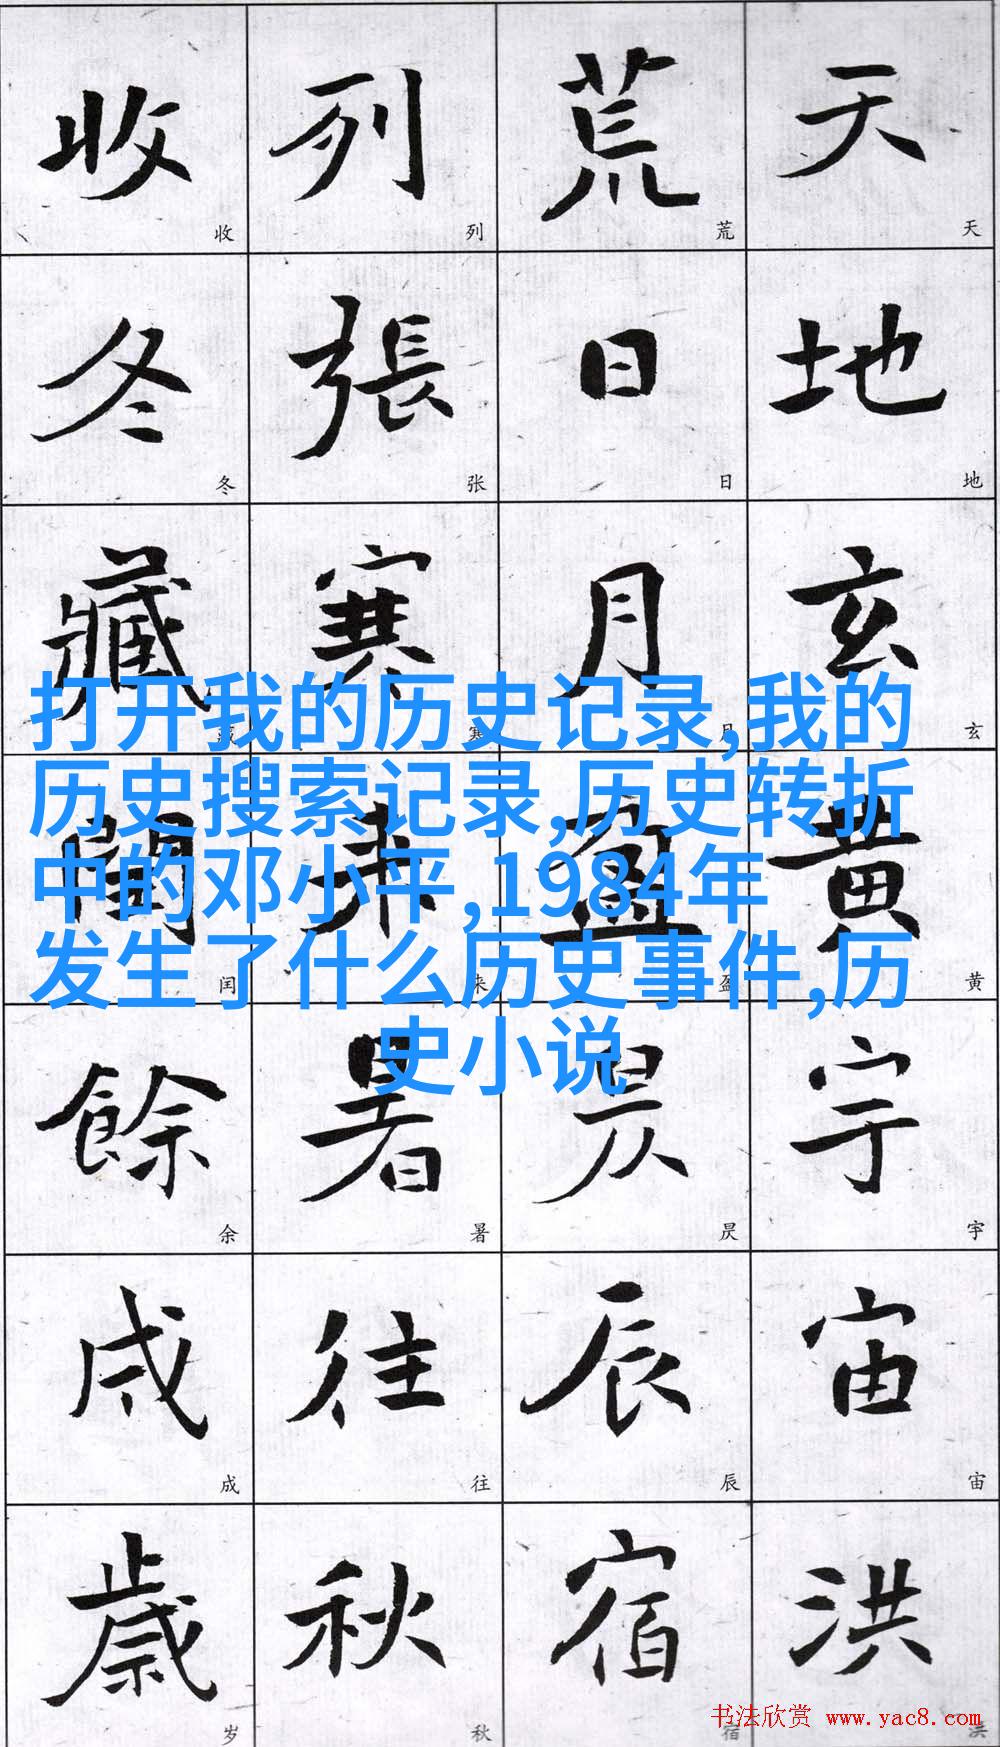 天地玄黄宇宙洪
荒日月盈昃辰宿
列張寒来暑往秋
收冬藏閏餘成歲
天地玄黄宇宙洪
荒日月盈昃辰宿
列张寒来暑往秋
收冬藏闰余成岁
打开我的历史记录,我的
历史搜索记录,历史转折
中的邓小平,1984年
发生了什么历史事件,历
史小说
书法欣赏 www.yac8.com